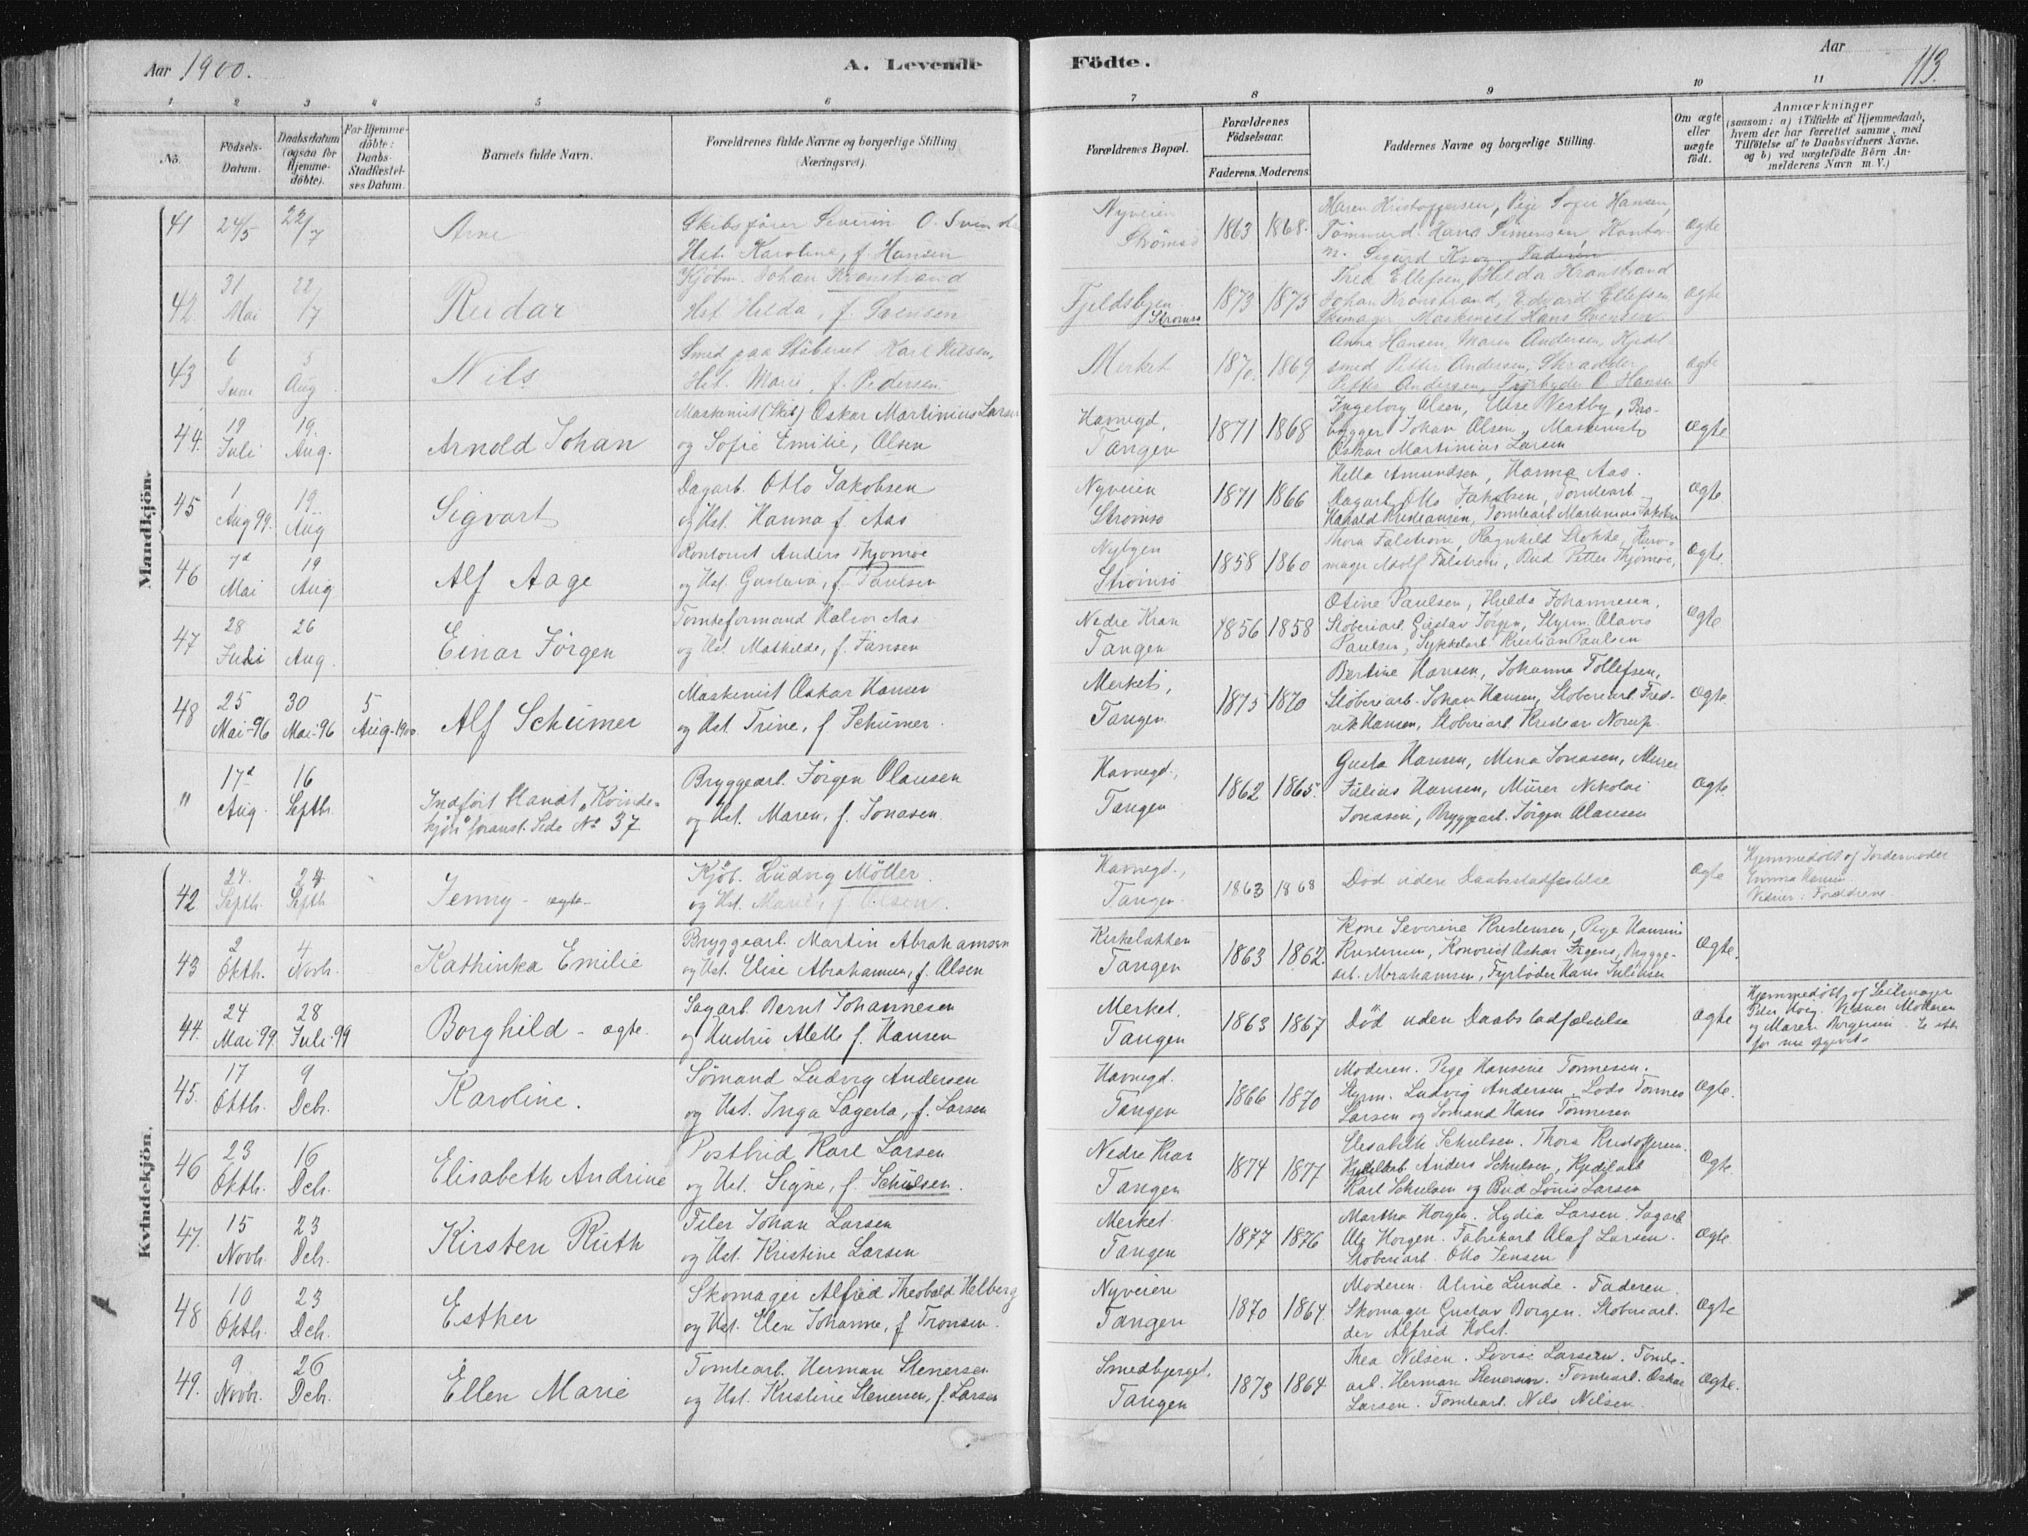 Aar 1900.
A. Levende Födte.
Aar
113.
1 2 3 4 5 6 7 8 9 10 11
No.
Födsels-Datum.
Daabsdatum (ogsaa for Hjemme-döbte).
For Hjemme-döbte: Daabs-Stadfæstel-ses Datum.
Barnets fulde Navn.
Forældrenes fulde Navne og borgerlige Stilling (Næringsvei).
Forældrenes Bopæl.
Forældrenes Födselsaar.
Faderens. Moderens.
Faddernes Navne og borgerlige Stilling.
Om ægte eller uægte födt.
Anmærkninger
(saasom: a) i Tilfælde af Hjemmedaab, hvem der har forrettet samme, med Tilföielse af to Daabsvidners Navne, og b) ved uægtefödte Börn An-melderens Navn m. V.)
Mandkjön.
41 24/5 22/7 Arne
Skibsfører Severin O.
Hst. Karoline, f. Hansen
Nyveien Strømsø 1863 1868.
Maren Kristoffersen, Pige Sofie Hansen,
Tømmerd. Hans Simensen
Sigurd Faderen
ægte
42 31 Mai 22/7 Reidar
Kjøbm. Johan Kronstrand
Hst. Hilda, f. Svensen
Fjeldsbyen Strømsø 1873 1875
Thea Ellefsen, Hilda Kronstrand
Johan Kronstrand, Edvard Ellefsen
Skomager Maskinist Hans
ægte
43 6 Juni 5 Aug. Nils
Smed paa Støberiet Karl Nilsen,
Hst. Marie, f. Pedersen
Merket 1870. 1869
Anna Hansen, Maren Andersen, Kjedl
smed Petter Andersen, Skrædder
Petter Andersen, Fyrbyder O. Hansen
ægte
44. 19 Juli 19 Aug. Arnold Johan
Maskinist (Skib) Oskar Martinius Larsen
og Sofie Emilie, Olsen
Havnegd. Tangen 1871 1868
Ingeborg Olsen, Else Vestby, Bro-
bygger Johan Olsen, Maskinist
Oskar Martinius Larsen
ægte
45 1 Aug 99. 19. Aug Sigvart
Dagarb. Otto Jakobsen
og Hst. Hanna f. Aas
Nyveien Strømsø 1871 1866
Hella Amundsen, Hanna Aas.
Dagarb. Otto Jakobsen, Tomtearb.
Harald Kristiansen, Tomtearb Martinius Jakobsen
ægte
46 7d Mai 19 Aug Alf Aage
Kontorist Anders Thjømøe
og Hst. Gustava, f. Paulsen
Nybyen Strømsø 1858 1860
Thora Falstrøm, Ragnhild Stokke,
mager Adolf Falstrøm, Bud Petter Thjømøe,
ægte.
47 28 Juli 26 Aug. Einar Jørgen
Tomteformand Halvor Aas
og Hst. Mathilde, f. Jansen
Nedre Kran Tangen 1856 1858
Otine Paulsen, Hulda Johannesen,
Støberiarb. Gustav Jørgen, Styrm. Olavis
Paulsen, Sykkelarb. Kristian Paulsen
ægte
48 25 Mai-96 30 Mai-96 5 Aug.1900. Alf Schümer
Maskinist Oskar Hansen
og Hst. Trine, f. Schümer.
Merket, Tangen 1875 1870
Bertine Hansen, Johanna Tollefsen,
Støberiarb. Johan Hansen, Støberiarb. Fred-
rik Hansen, Støberiarb. Kristian Norup
ægte
" 17d Aug. 16 Septbr.
Indført blandt „Kvinde-
kjøn" foranst. Side No 37
Bryggearb. Jørgen Olausen
og Hst. Maren, f. Jonasen.
Havnegd., Tangen 1862 1865.
Gusta Hansen, Mina Jonasen, Murer
Julius Hansen, Murer Nikolai
Jonasen, Bryggearb. Jørgen Olausen
ægte.
Kvindekjön.
42 24. Septb. 24 Septb Jenny - ægte
Kjøb. Ludvig Møller.
og Hst. Marie, f. Olsen.
Havnegd., Tangen. 1863 1868
Død uden Daabsstadfæstelse
ægte
Hjemmedøbt af Jordemoder
Emma Hansen.
Vidner: Forældrene.
43 2 Oktb. 4 Novb. Kathinka Emilie
Bryggearb. Martin Abrahamsen
og Hst. Elise Abrahamsen, f. Olsen
Kirkeløkken Tangen 1863 1862.
Kone Severine Kristensen, Pige Hansine
Kristensen, Kontorist Oskar Brygge-
arb. Abrahamsen, Fyrbøder Hans Julsen
ægte.
44. 24 Mai 99. 28 Juli 99 Borghild - ægte.
Sagarb. Bernt Johannesen
og Hustru Alette f. Hansen
Merket. Tangen 1863 1867
Død uden Daabsstadfæstelse
ægte
Hjemmedøbt af Seilmager
Peter Vidner Moderen
og Maren Borgersen. Er ikke
før nu opgivet.
45. 17 Oktb. 9 Deb. Karoline.
Sømand Ludvig Andersen
og Hst. Inga Lagerta, f. Larsen
Havnegd. Tangen 1866 1870
Moderen. Pige Hansine Tønnesen.
Styrm. Ludvig Andersen. Lods Tønnes
Larsen og Sømand Hans Tønnesen
ægte.
46 23 Oktb. 16 Deb. Elisabeth Andrine
Postbud Karl Larsen
og Hst. Signe, f. Schülsen.
Nedre Kran Tangen 1874 1877
Elisabeth Schulsen. Thora Kristoffersen.
Anders Schulsen, Kjedlarb
Karl Schulsen og Bud Louis Larsen
ægte.
47. 15 Novb. 23 Deb. Kirsten Ruth
Filer Johan Larsen
og Hst. Kristine Larsen
Merket. Tangen 1877 1876
Martha Horgen. Lydia Larsen. Sagarb.
Ole Horgen. Fabrikarb. Olaf Larsen.
Støberiarb. Otto Jensen
ægte.
48 10 Oktb. 23 Deb. Esther
Skomager Alfred Theobald Helberg
og Hst. Elen Johanne, f. Tronsen.
Nyveien Tangen 1870 1864
Moderen. Aline Lunde. Faderen.
Skomager Gustav Borgen. Støberiarbei-
der Alfred Holst.
ægte
49. 9 Novb. 26 Deb. Ellen Marie
Tomtearb. Herman Stenersen
og Hst. Kristine Stenersen, f. Larsen
Smedbjerget. Tangen 1873 1864
Thea Nilsen. Lovise Larsen. Tomte-
arb. Herman Stenersen. Tomtearb. Oskar
Larsen. Tomtearb. Nils Nilsen.
ægte.